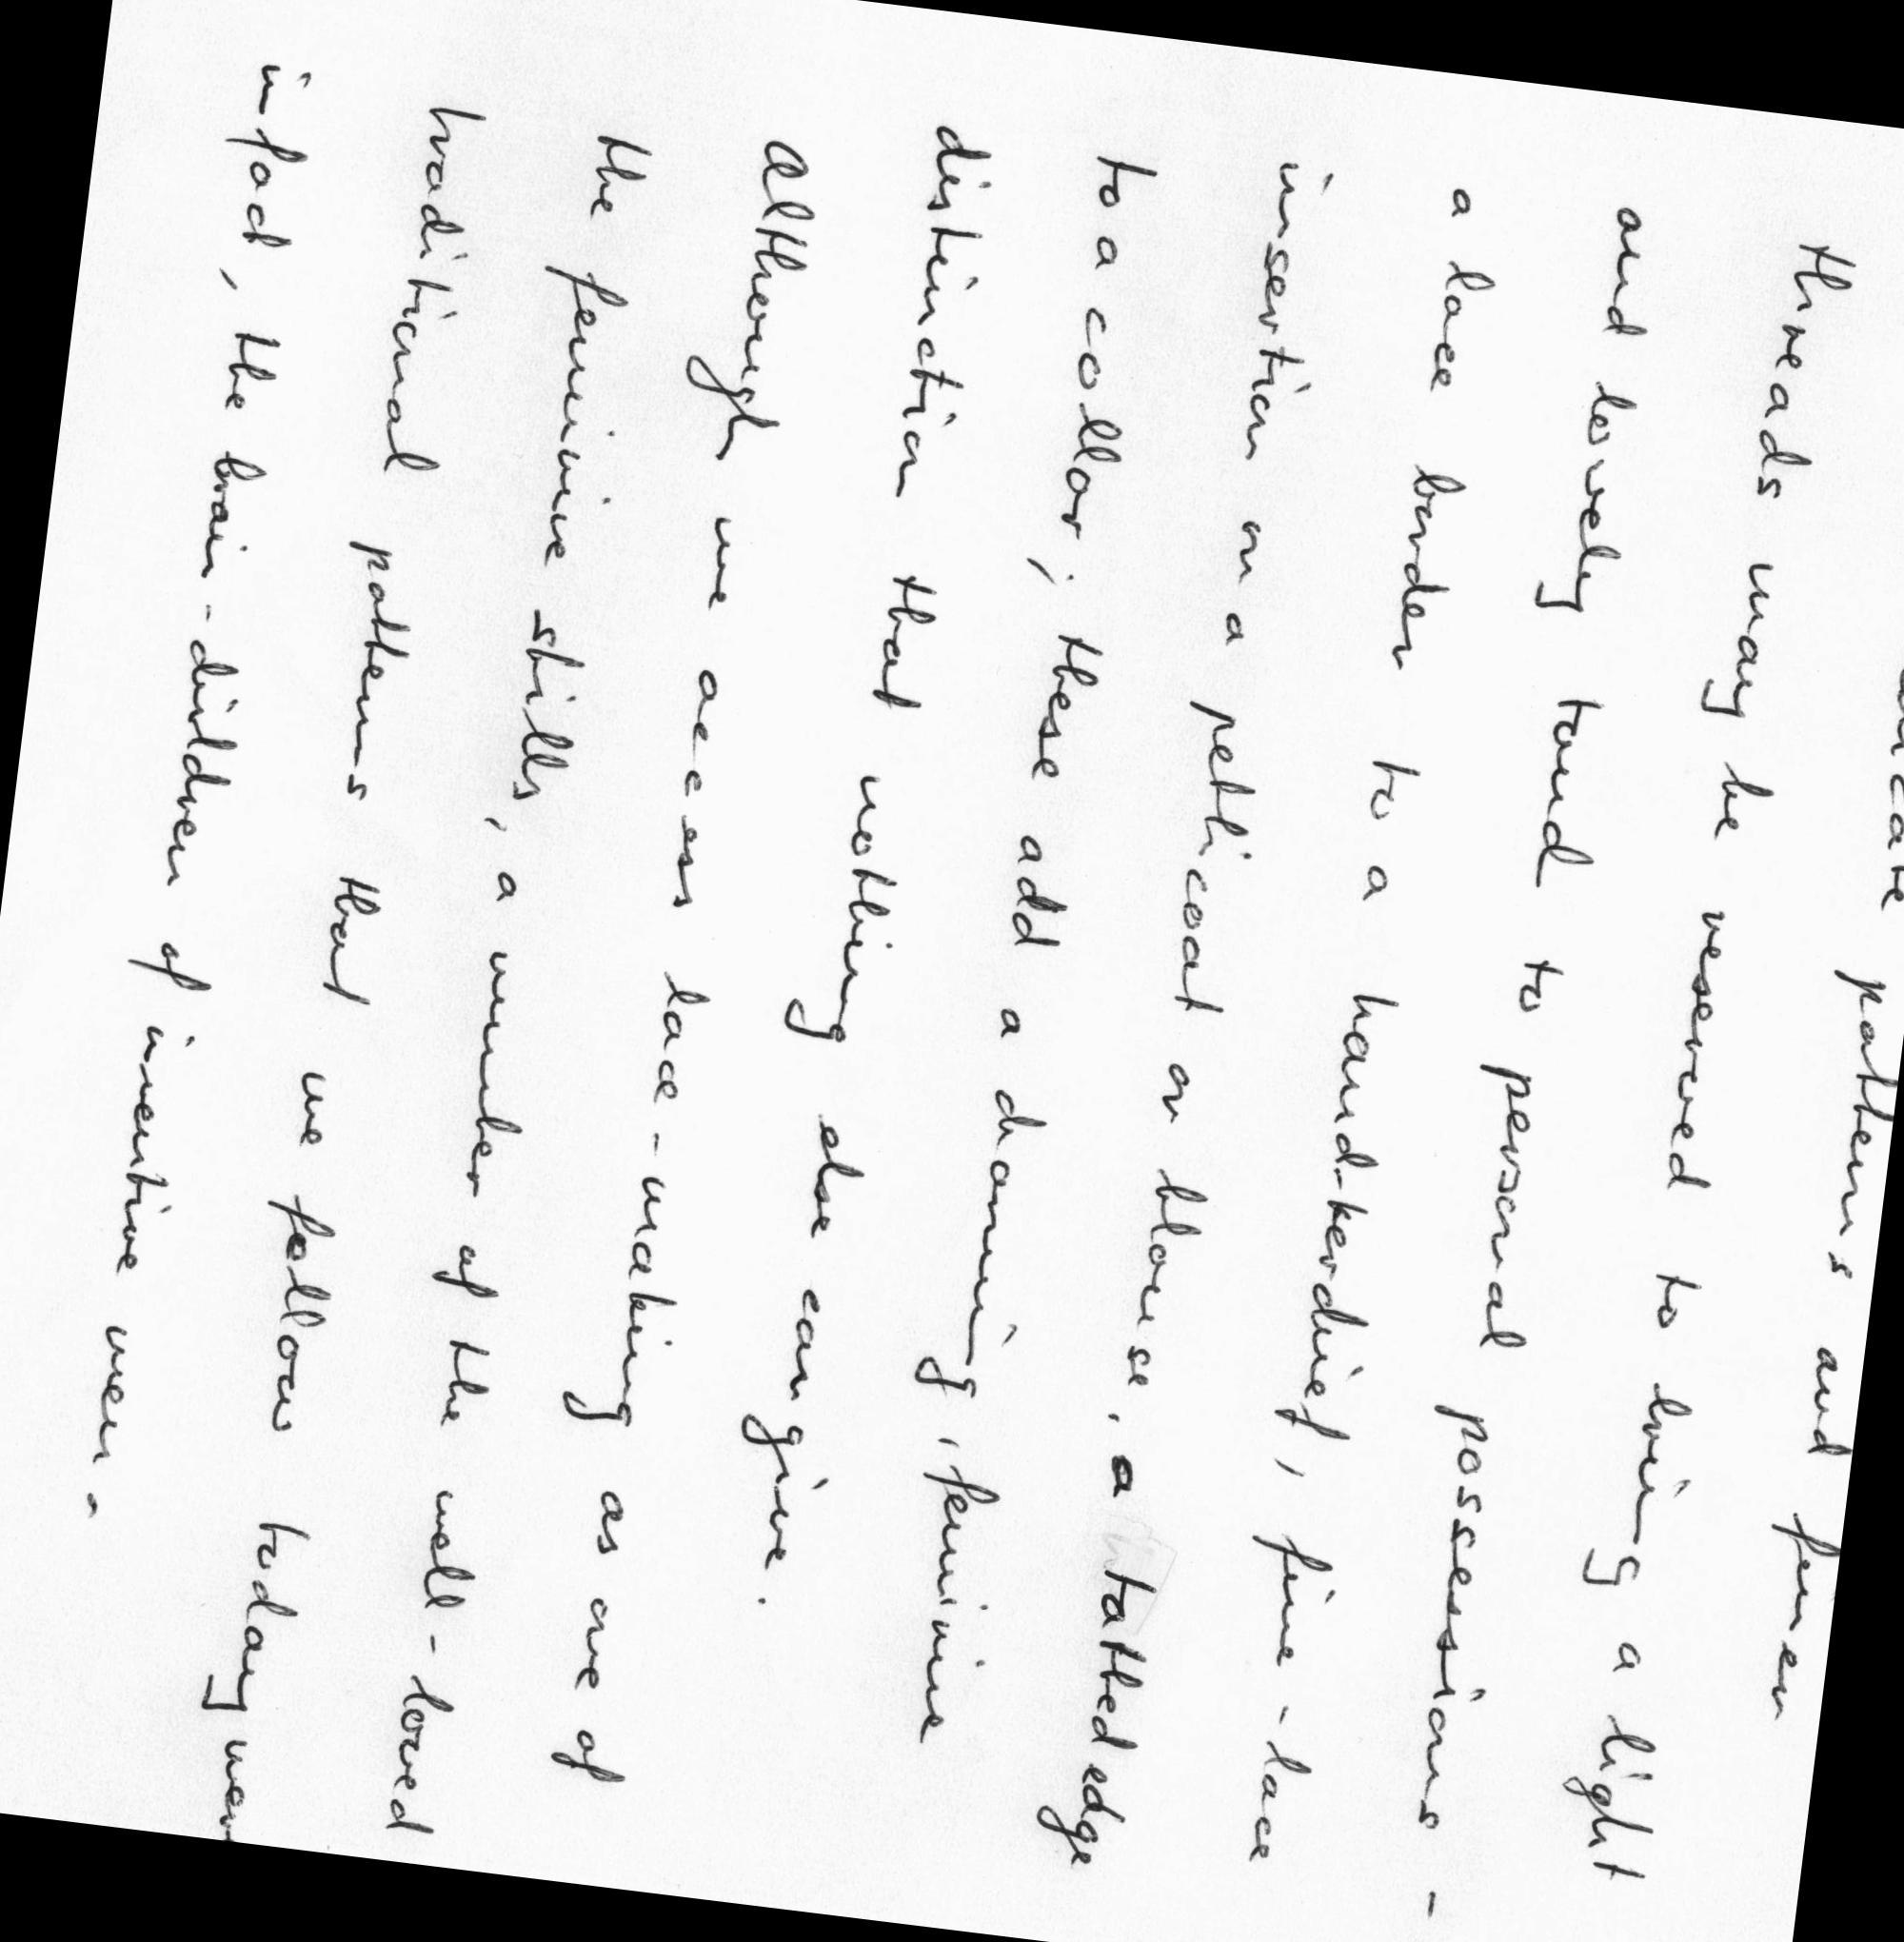 patterns and finer
threads may be reserved to bring a light
and lovely touch to personal possessions -
a lace border to a hand-kerchief, fine-lace
insertion on a petticoat or blouse, a tatted edge
to a collar; these add a charming, feminine
distinction that nothing else can give.
Although we access lace-making as one of
the feminine skills, a number of the well-loved
traditional patterns that we follow today were
in fact, the brain-children of inventive men.